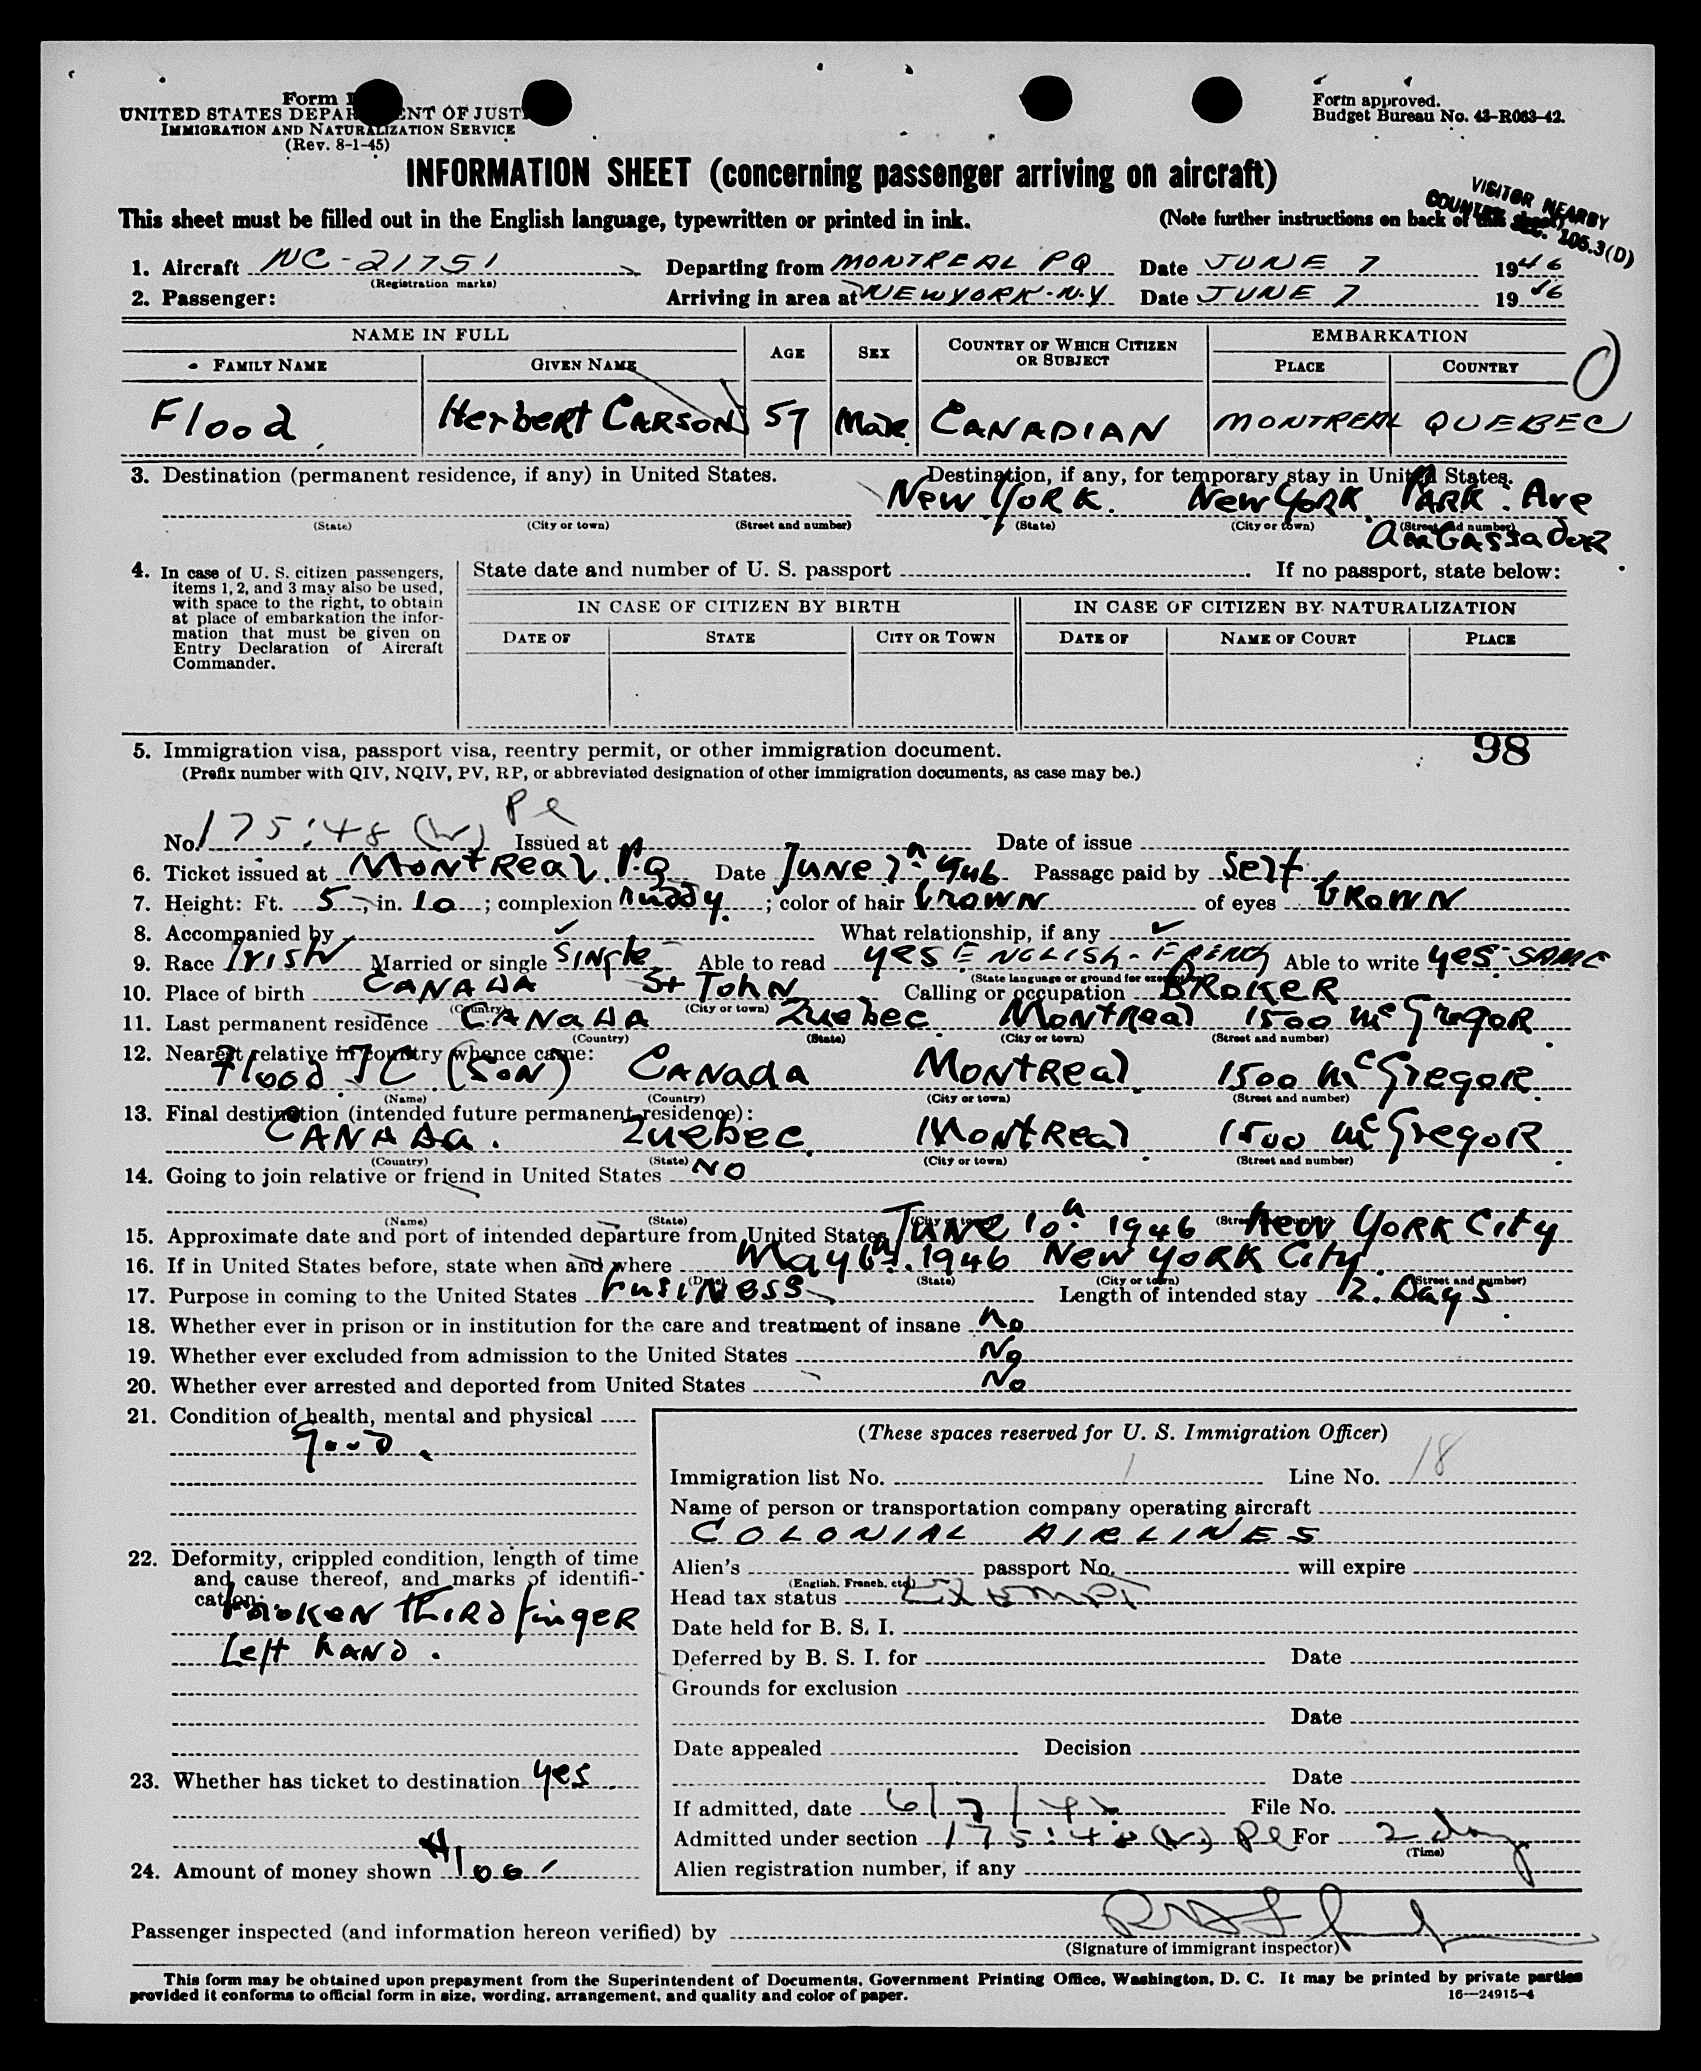 Form I
UNITED STATES DEPAR ENT OF JUST
IMMIGRATION AND NATURALIZATION SERVICE
(Rev. 8-1-45)
Form approved.
Budget Bureau No. 43-R063-42.
INFORMATION SHEET (concerning passenger arriving on aircraft)
This sheet must be filled out in the English language, typewritten or printed in ink.
(Note further instructions on back of this sheet)
VISITOR NEARBY
COUNTRY SEC. 105.3(D)
1. Aircraft NC-21751 Departing from MONTREAL PQ Date JUNE 7 1946
(Registration marks)
2. Passenger: Arriving in area at NEW YORK-N.Y Date JUNE 7 1946
NAME IN FULL AGE SEX COUNTRY OF WHICH CITIZEN OR SUBJECT EMBARKATION
FAMILY NAME GIVEN NAME PLACE COUNTRY
Flood Herbert CARSON 57 Male CANADIAN MONTREAL QUEBEC
3. Destination (permanent residence, if any) in United States. Destination, if any, for temporary stay in United States.
New York. New York. PARK. Ave
(State) (City or town) (Street and number) (State) (City or town) (Street and number)
AmbassadoR
4. In case of U. S. citizen passengers, items 1, 2, and 3 may also be used, with space to the right, to obtain at place of embarkation the information that must be given on Entry Declaration of Aircraft Commander.
State date and number of U. S. passport If no passport, state below:
IN CASE OF CITIZEN BY BIRTH IN CASE OF CITIZEN BY NATURALIZATION
DATE OF STATE CITY OR TOWN DATE OF NAME OF COURT PLACE
98
5. Immigration visa, passport visa, reentry permit, or other immigration document.
(Prefix number with QIV, NQIV, PV, RP, or abbreviated designation of other immigration documents, as case may be.)
Pl
No. 175:48 (W) Issued at Date of issue
6. Ticket issued at Montreal. P.Q Date June 7th 1946 Passage paid by Self
7. Height: Ft. 5, in. 10; complexion ruddy; color of hair brown of eyes brown
8. Accompanied by What relationship, if any
9. Race Irish Married or single Single Able to read yes ENGLISH-FRENCH Able to write yes-SAME
(State language or ground for exemption)
10. Place of birth CANADA St John Calling or occupation BROKER
(Country) (City or town)
11. Last permanent residence CANADA Quebec. Montreal 1500 McGregor.
(Country) (State) (City or town) (Street and number)
12. Nearest relative in country whence came:
Flood JC (Son) CANADA MontReal 1500 McGregor.
(Name) (Country) (City or town) (Street and number)
13. Final destination (intended future permanent residence):
CANADA. Quebec. MontReal 1500 McGregor.
(Country) (State) (City or town) (Street and number)
14. Going to join relative or friend in United States NO
(Name) (State) (City or town) (Street and number)
15. Approximate date and port of intended departure from United States June 10th 1946 New York City
16. If in United States before, state when and where May 6th. 1946 New York City.
(Date) (State) (City or town) (Street and number)
17. Purpose in coming to the United States business Length of intended stay 2. Days.
18. Whether ever in prison or in institution for the care and treatment of insane No
19. Whether ever excluded from admission to the United States No
20. Whether ever arrested and deported from United States No
21. Condition of health, mental and physical
good.
22. Deformity, crippled condition, length of time and cause thereof, and marks of identification:
Broken third finger
Left hand.
23. Whether has ticket to destination yes
24. Amount of money shown $100
(These spaces reserved for U. S. Immigration Officer)
Immigration list No. 1 Line No. 18
Name of person or transportation company operating aircraft
COLONIAL AIRLINES
Alien's passport No. will expire
(English, French, etc.)
Head tax status Exempt
Date held for B. S. I.
Deferred by B. S. I. for Date
Grounds for exclusion
Date
Date appealed Decision
Date
If admitted, date 6/7/46 File No.
Admitted under section 175:48 (W) Pl For 2 day
(Time)
Alien registration number, if any
Passenger inspected (and information hereon verified) by
(Signature of immigrant inspector)
This form may be obtained upon prepayment from the Superintendent of Documents, Government Printing Office, Washington, D. C. It may be printed by private parties
provided it conforms to official form in size, wording, arrangement, and quality and color of paper.
16—24915-4